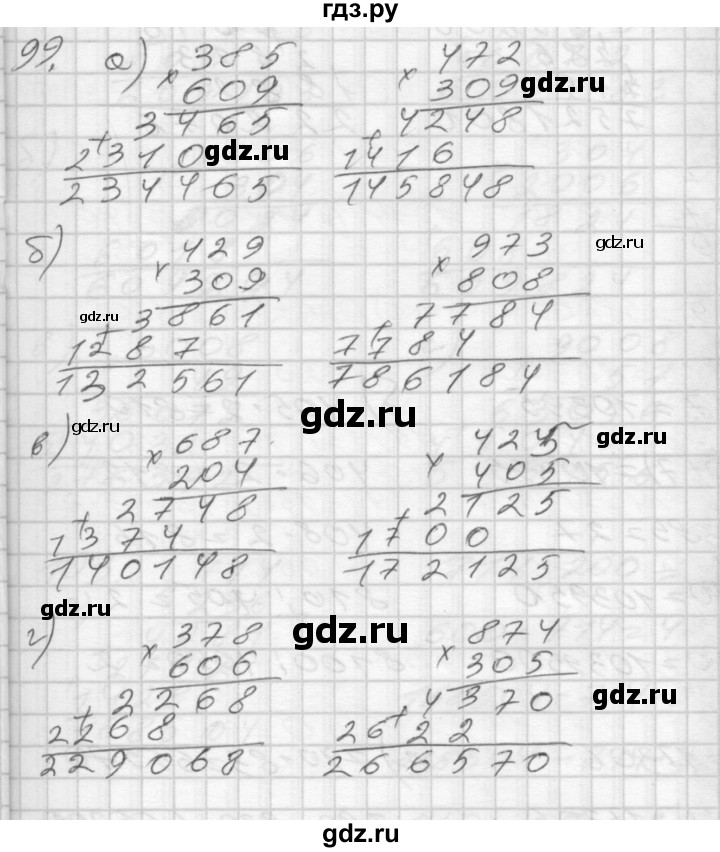 гдз.ру
99. а) 385 472
× 609 × 309
3465 4248
+ 2310 + 1416
234465 145848
gdz.ru gdz.ru
б) 429 973
× 309 × 808
3861 7784
+ 1287 + 7784
132561 786184
gdz.ru gdz.ru
gdz.ru
в) 687 425
× 204 × 405
2748 2125
+ 1374 + 1700
140148 172125
gdz.ru gdz.ru
gdz.ru
г) 378 874
× 606 × 305
2268 4370
+ 2268 + 2622
229068 266570
gdz.ru gdz.ru
gdz.ru